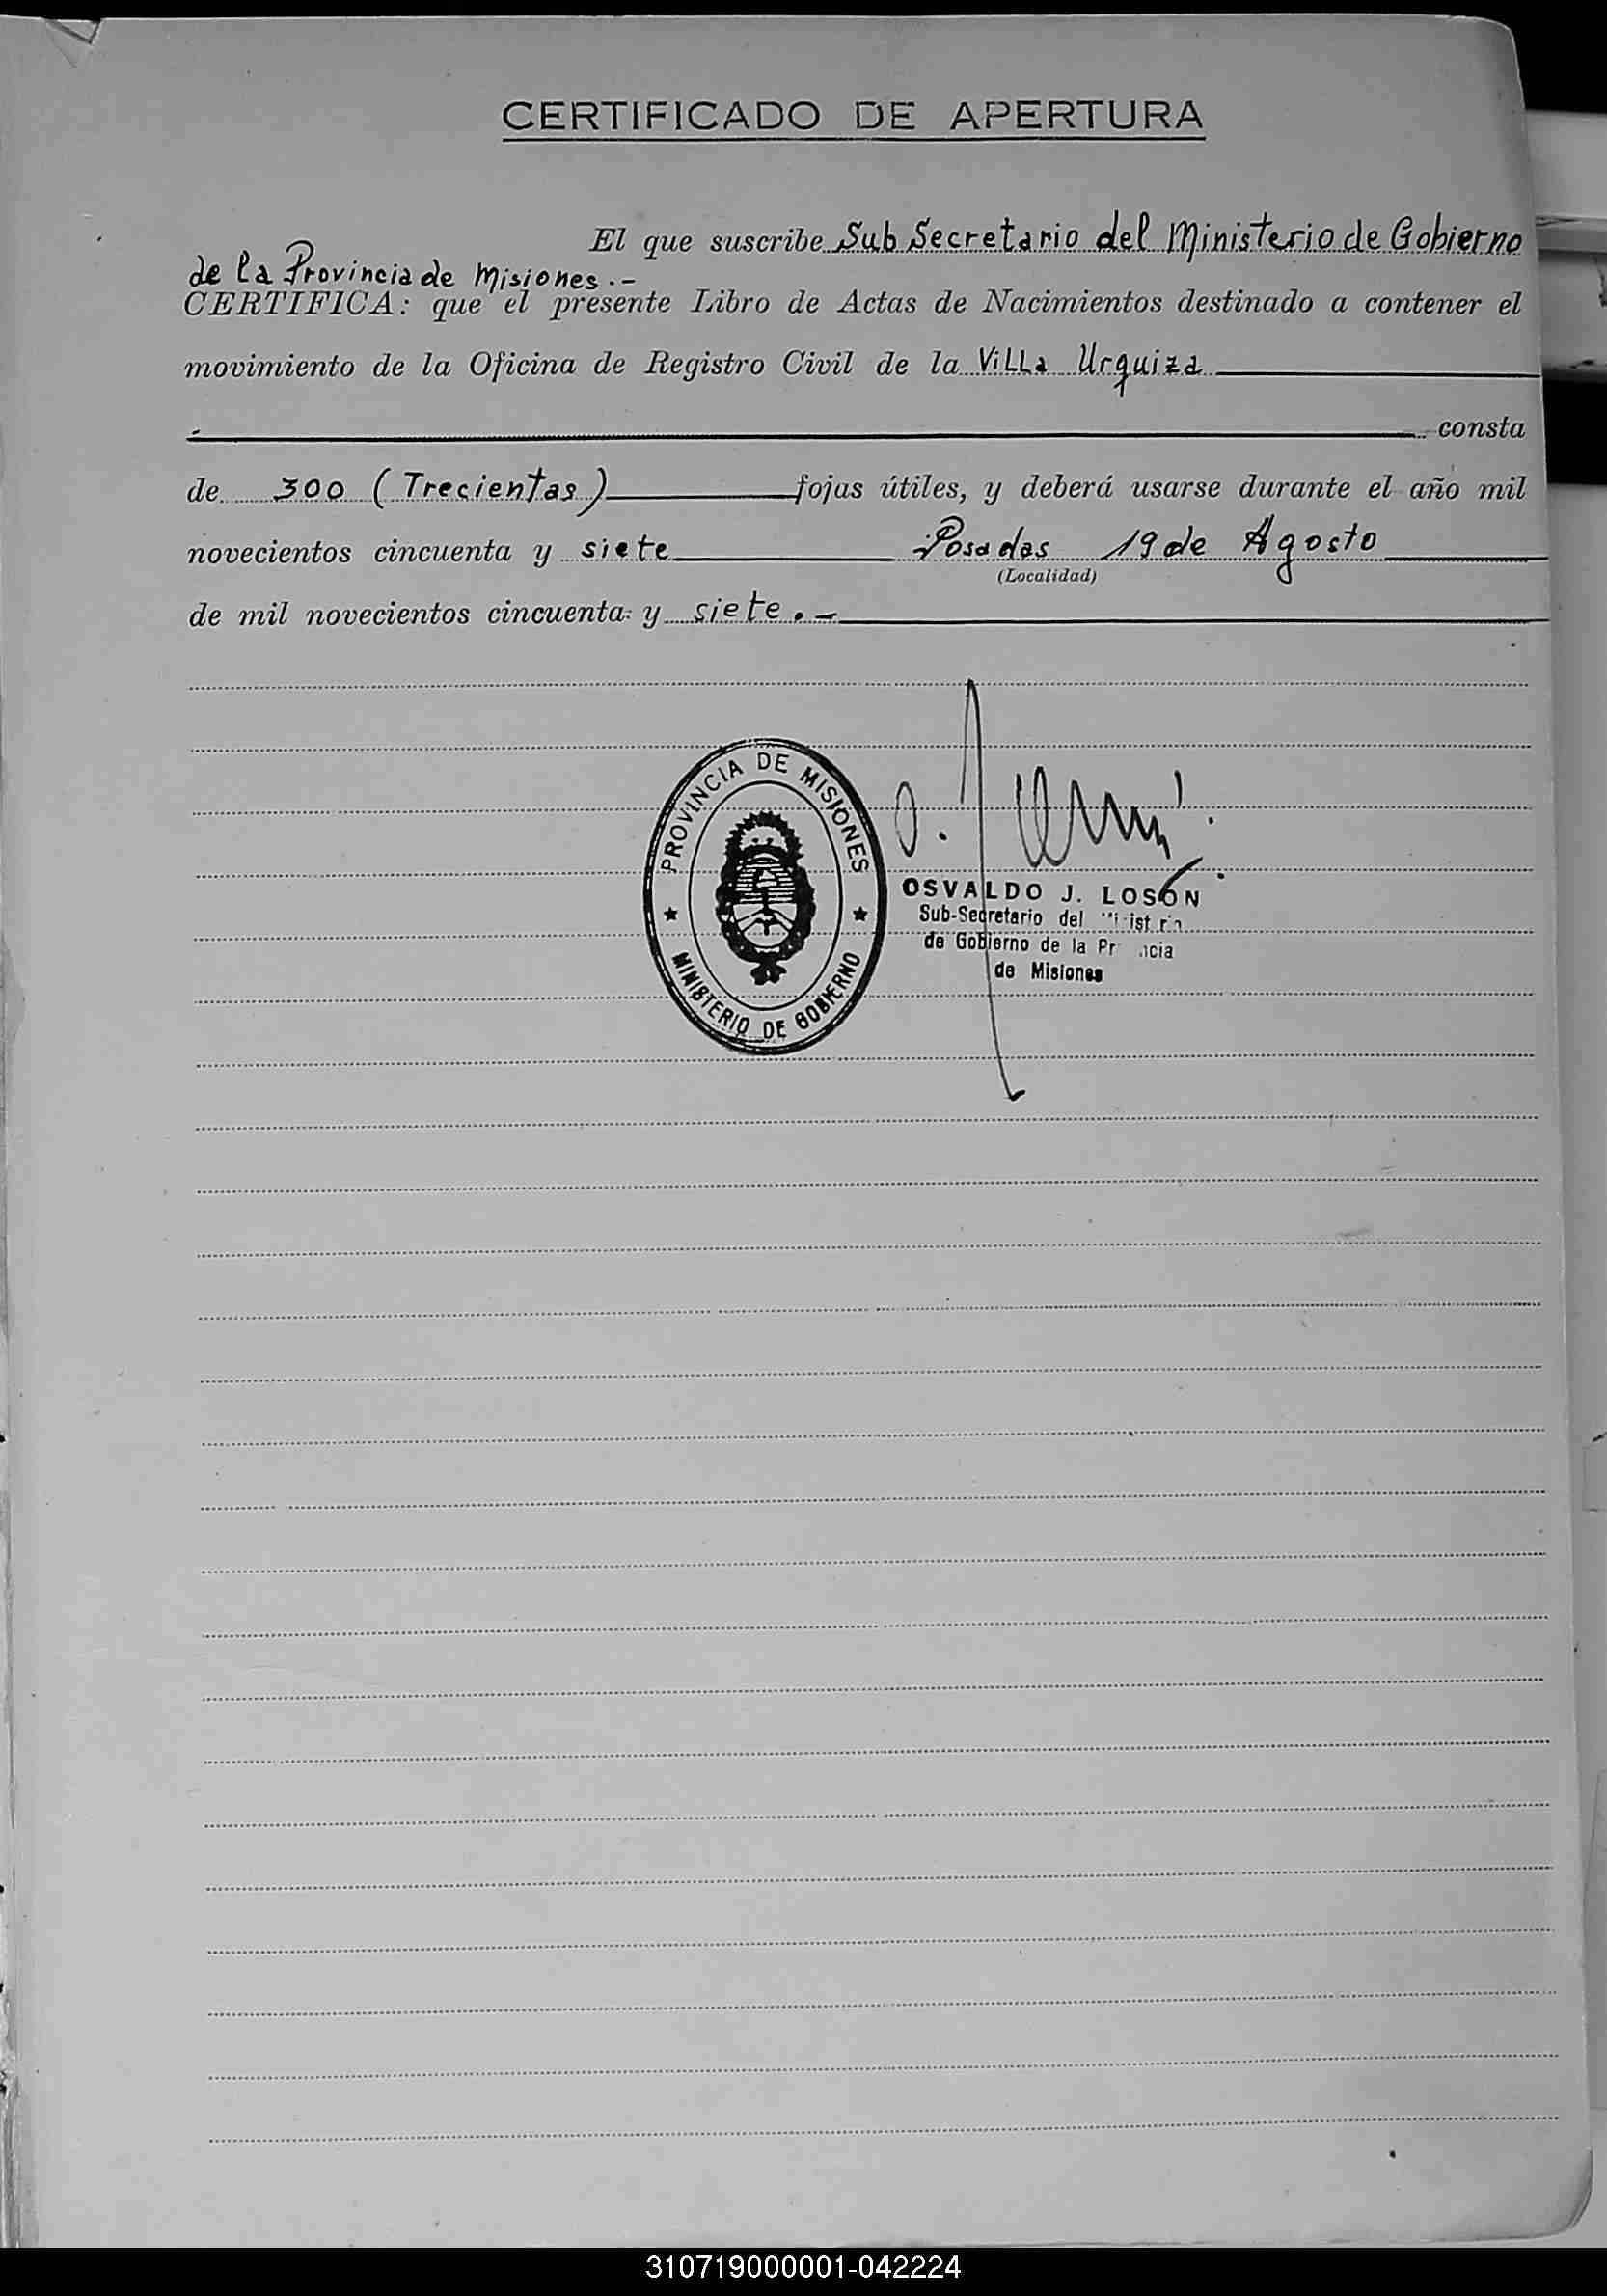 CERTIFICADO DE APERTURA
El que suscribe Sub Secretario del Ministerio de Gobierno
de la Provincia de Misiones.-
CERTIFICA: que el presente Libro de Actas de Nacimientos destinado a contener el
movimiento de la Oficina de Registro Civil de la Villa Urquiza
consta
de 300 (Trecientas) fojas útiles, y deberá usarse durante el año mil
novecientos cincuenta y siete Posadas 19 de Agosto
(Localidad)
de mil novecientos cincuenta y siete.-
PROVINCIA DE MISIONES
MINISTERIO DE GOBIERNO
OSVALDO J. LOSÓN
Sub-Secretario del
de Gobierno de la
de Misiones
310719000001-042224